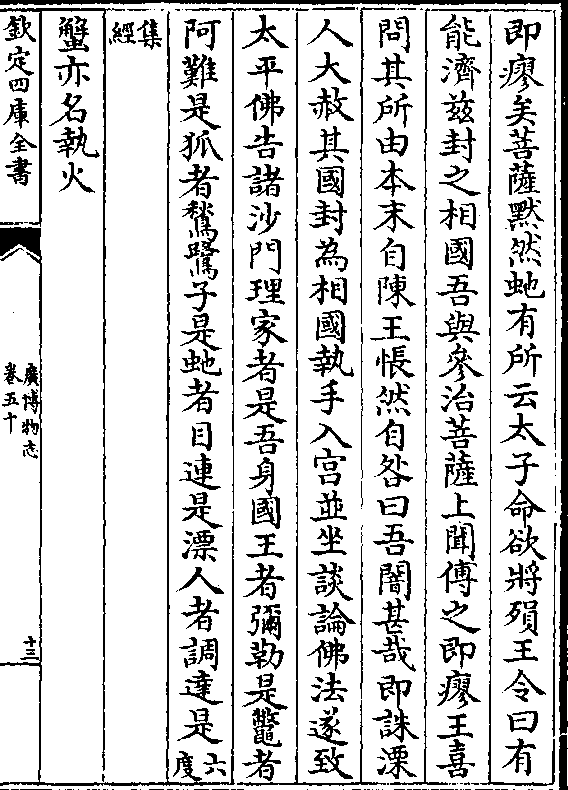 即瘳矣菩薩黙然虵有所云太子命欲將殞王令曰有
能濟兹封之相國吾與參治菩薩上聞傅之即瘳王喜
問其所由本末自陳王悵然自咎曰吾闇甚哉即誅漂
人大赦其國封為相國執手入宫並坐談論佛法遂致
太平佛告諸沙門理家者是吾身國王者彌勒是鼈者
阿難是狐者鶖鷺子是虵者目連是漂人者調達是六度
集經
蟹亦名執火
欽定四庫全書
廣博物志
卷五十
十三